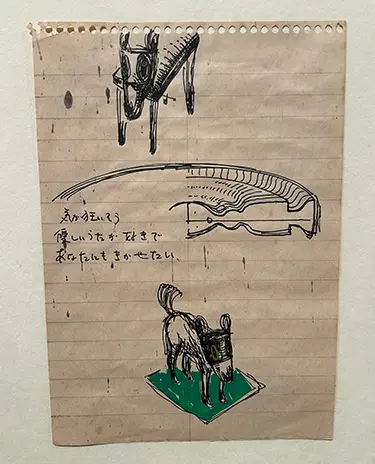 気が狂いそう
優しいうたが好きで
あなたにもきかせたい、